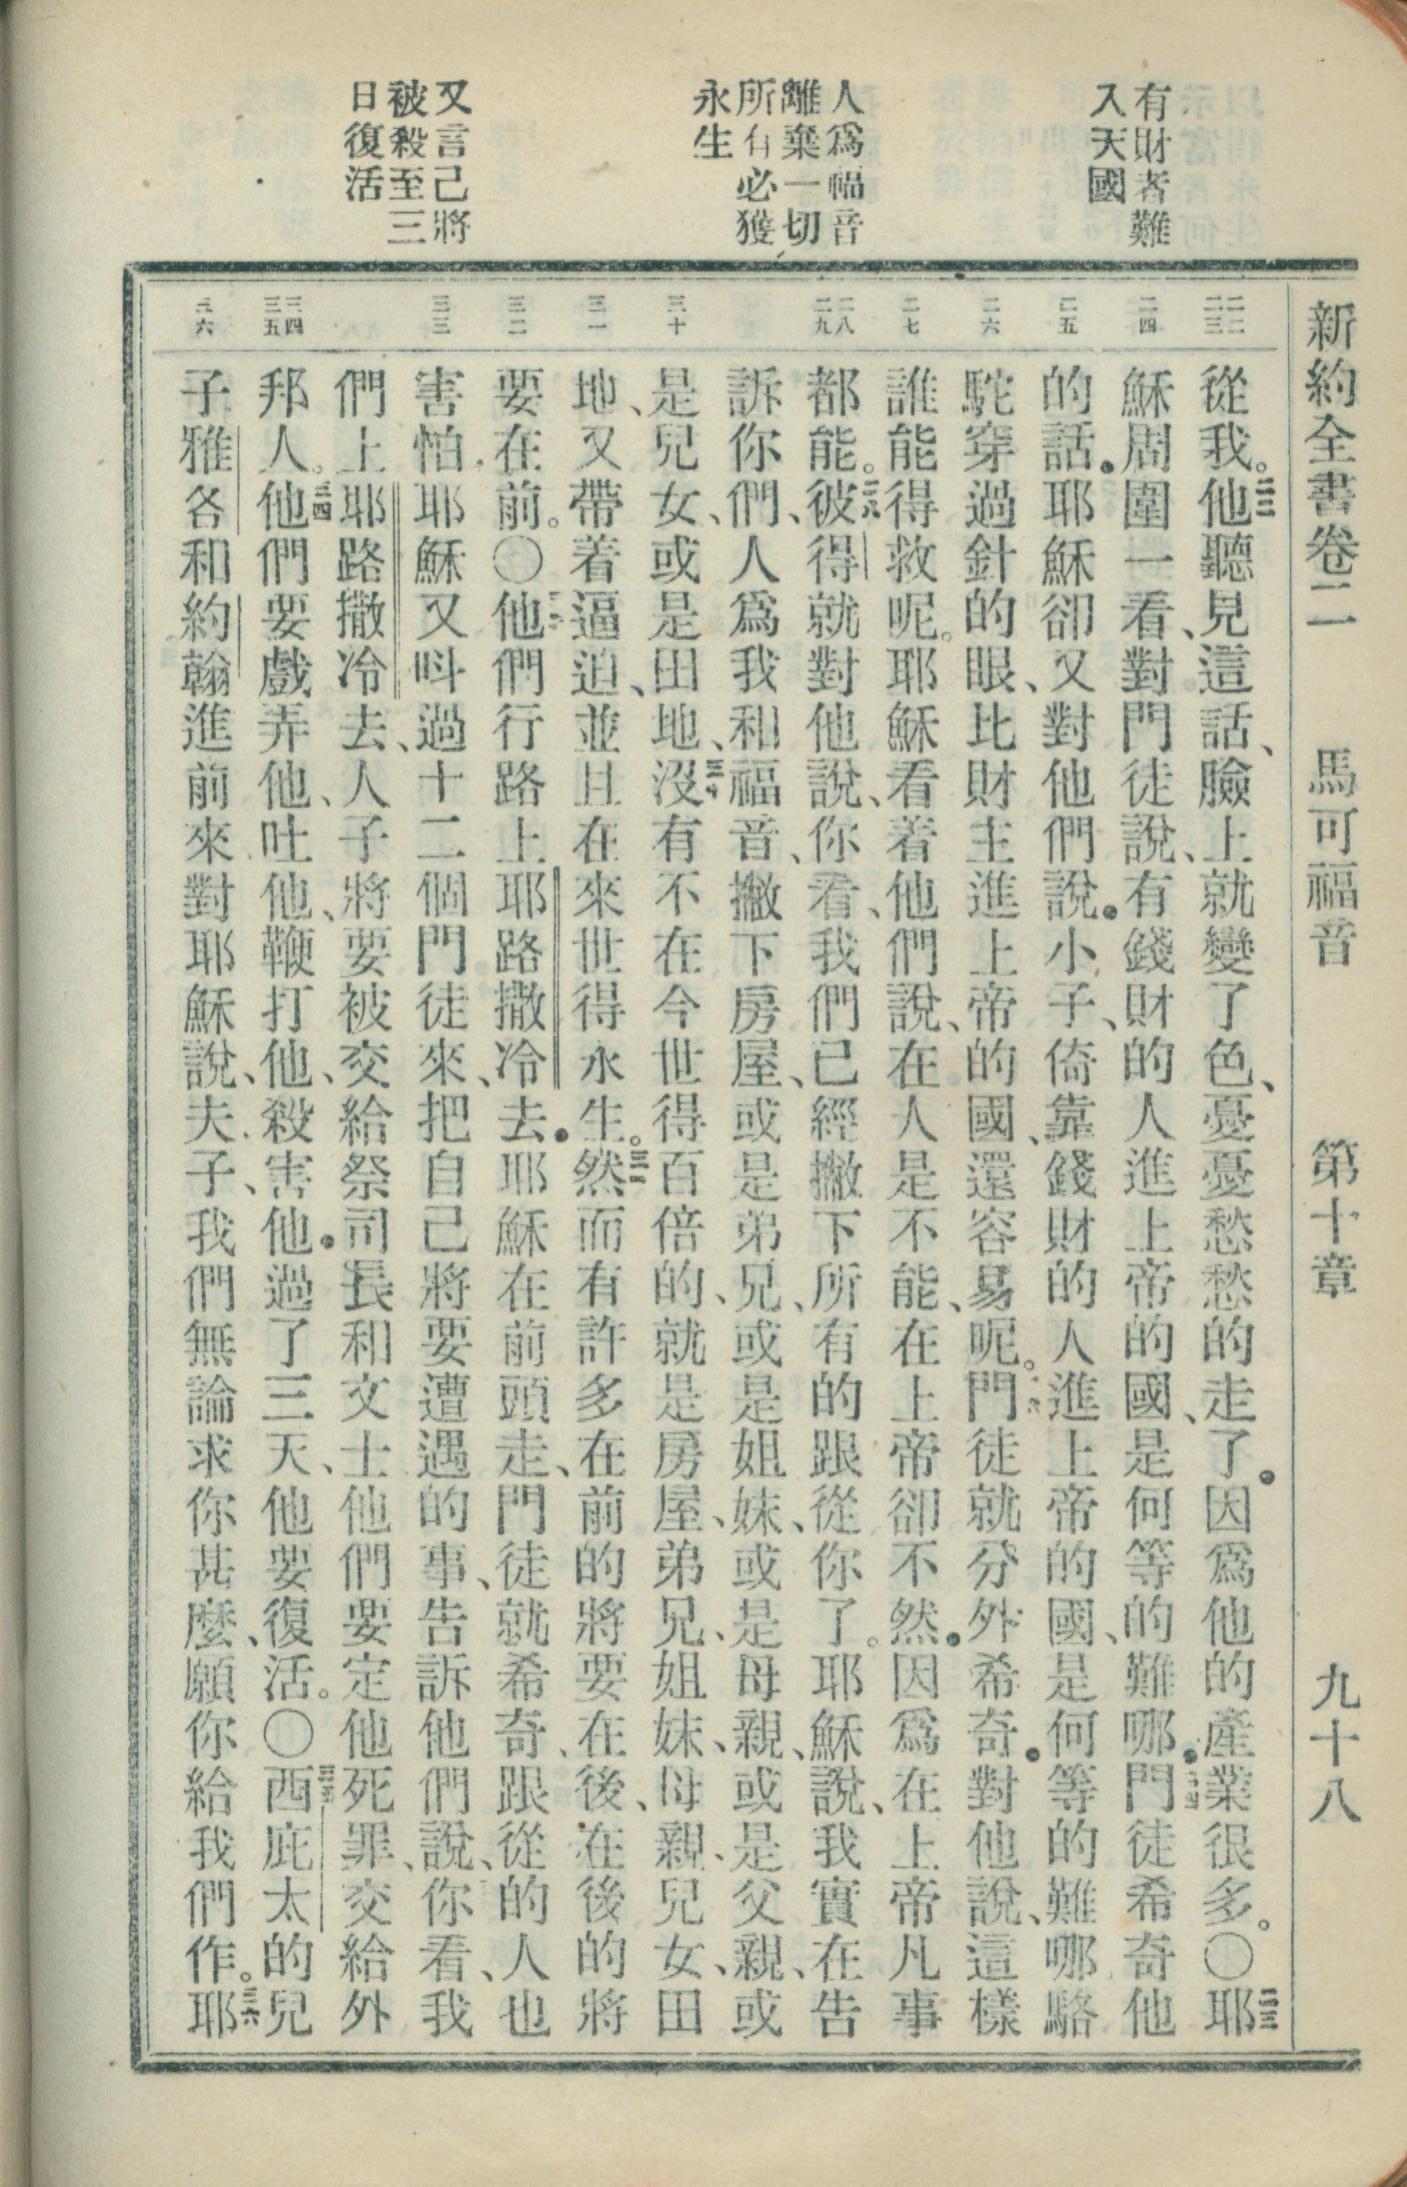 新約全書卷二 馬可福音 第十章 九十八
有財者難
入天國
人爲福音
離棄一切
所有必獲
永生
又言己將
被殺至三
日復活
二二 二三
二四
二五
二六
二七
二八 二九
三十
三一
三二
三三
三四 三五
三六
從我。他聽見這話、臉上就變了色、憂憂愁愁的走了.因爲他的產業很多。〇耶
穌周圍一看、對門徒說、有錢財的人進上帝的國、是何等的難哪.門徒希奇他
的話.耶穌卻又對他們說.小子、倚靠錢財的人進上帝的國、是何等的難哪.駱
駝穿過針的眼、比財主進上帝的國、還容易呢。門徒就分外希奇.對他說、這樣
誰能得救呢。耶穌看着他們說、在人是不能、在上帝卻不然.因爲在上帝凡事
都能。彼得就對他說、你看、我們已經撇下所有的跟從你了。耶穌說、我實在告
訴你們、人爲我和福音、撇下房屋、或是弟兄、或是姐妹、或是母親、或是父親、或
是兒女、或是田地、沒有不在今世得百倍的、就是房屋、弟兄、姐妹、母親、兒女、田
地、又帶着逼迫、並且在來世得永生。然而有許多在前的將要在後、在後的將
要在前。〇他們行路上耶路撒冷去.耶穌在前頭走、門徒就希奇、跟從的人也
害怕.耶穌又呌過十二個門徒來、把自己將要遭遇的事、告訴他們說、你看、我
們上耶路撒冷去、人子將要被交給祭司長和文士他們要定他死罪、交給外
邦人。他們要戲弄他、吐他、鞭打他、殺害他.過了三天、他要復活。〇西庇太的兒
子雅各和約翰進前來對耶穌說、夫子、我們無論求你甚麼、願你給我們作。耶